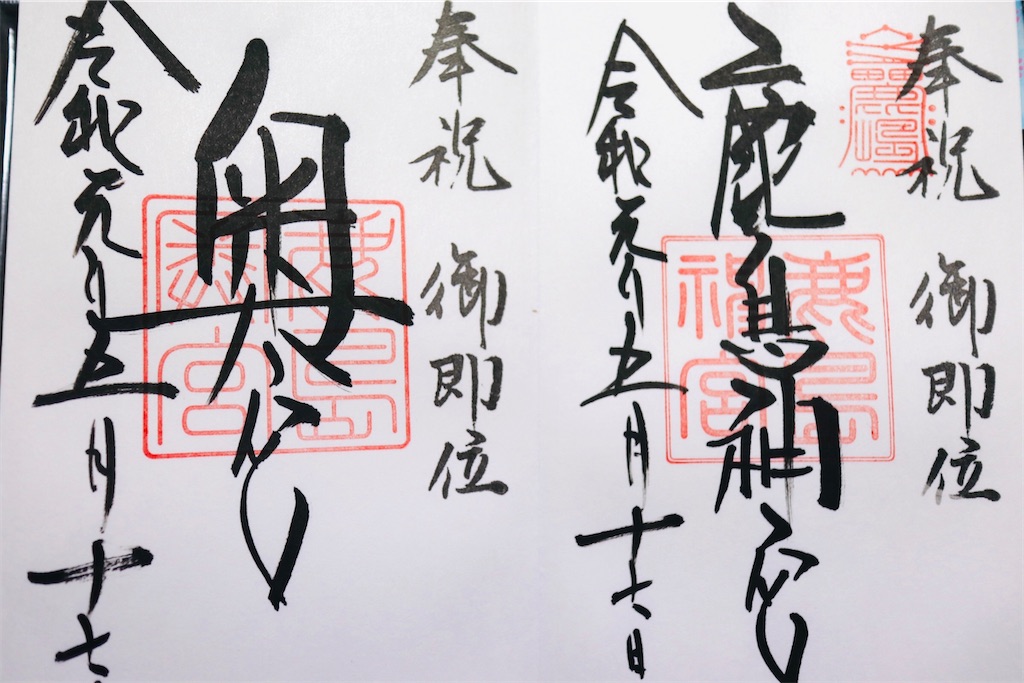 奉祝 御即位
鹿島神宮
令和元年五月十七日
鹿島
神宮
奉祝 御即位
奥宮
令和元年五月十七
鹿島
神宮